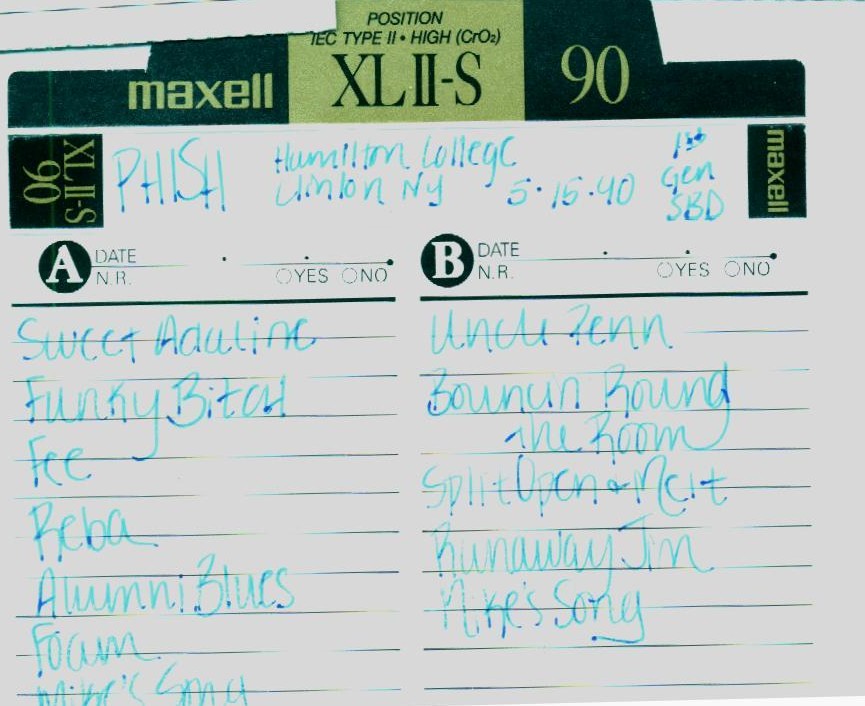 POSITION
IEC TYPE II • HIGH (CrO₂)
maxell XLII-S 90
XLII-S 90
PHISH Hamilton College 1st
Clinton NY 5.15.90 Gen
SBD
maxell
A DATE . .
N.R. YES NO
B DATE . .
N.R. YES NO
Sweet Adaline
Funky Bitch
Fee
Reba
Alumni Blues
Foam
Mike's Song
Uncle Penn
Bouncin Round
the Room
Split Open & Melt
Runaway Jim
Mike's Song